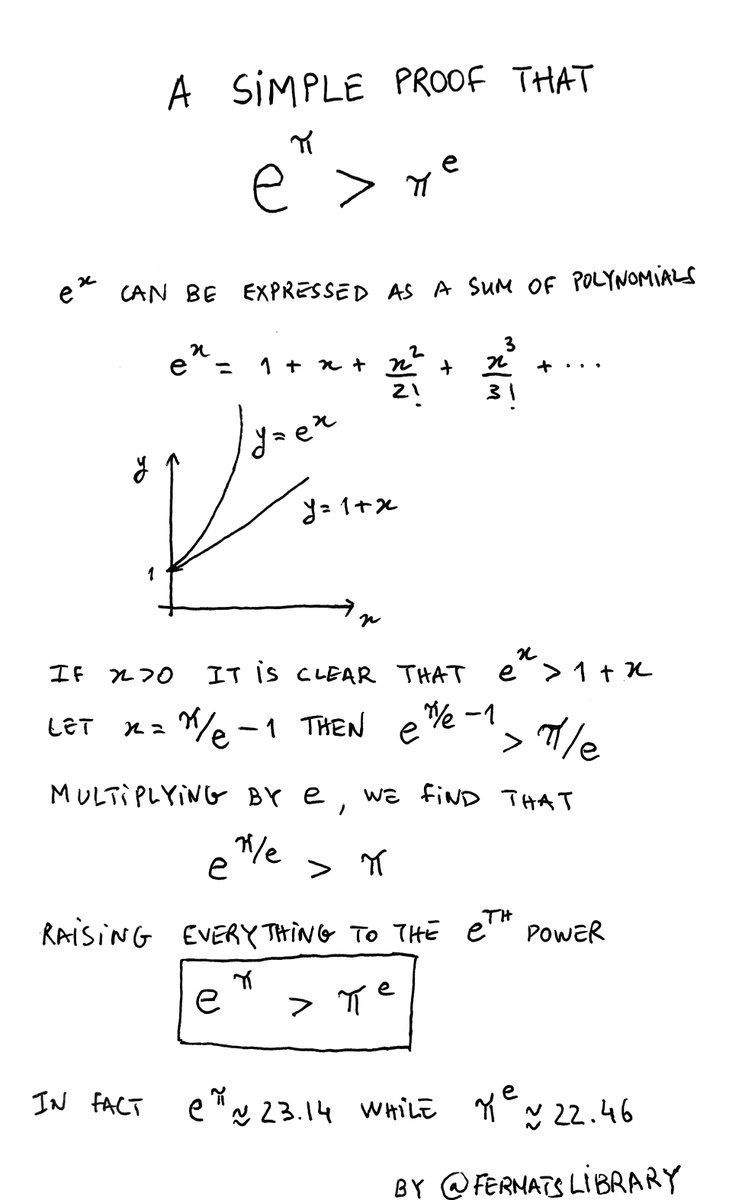 A SIMPLE PROOF THAT
e^π > π^e
e^x CAN BE EXPRESSED AS A SUM OF POLYNOMIALS
e^x = 1 + x + x^2/2! + x^3/3! + ...
y = e^x
y
y = 1 + x
1
x
IF x>0 IT IS CLEAR THAT e^x > 1 + x
LET x = π/e - 1 THEN e^(π/e - 1) > π/e
MULTIPLYING BY e, WE FIND THAT
e^(π/e) > π
RAISING EVERYTHING TO THE e^TH POWER
e^π > π^e
IN FACT e^π ≈ 23.14 WHILE π^e ≈ 22.46
BY @FERMATSLIBRARY